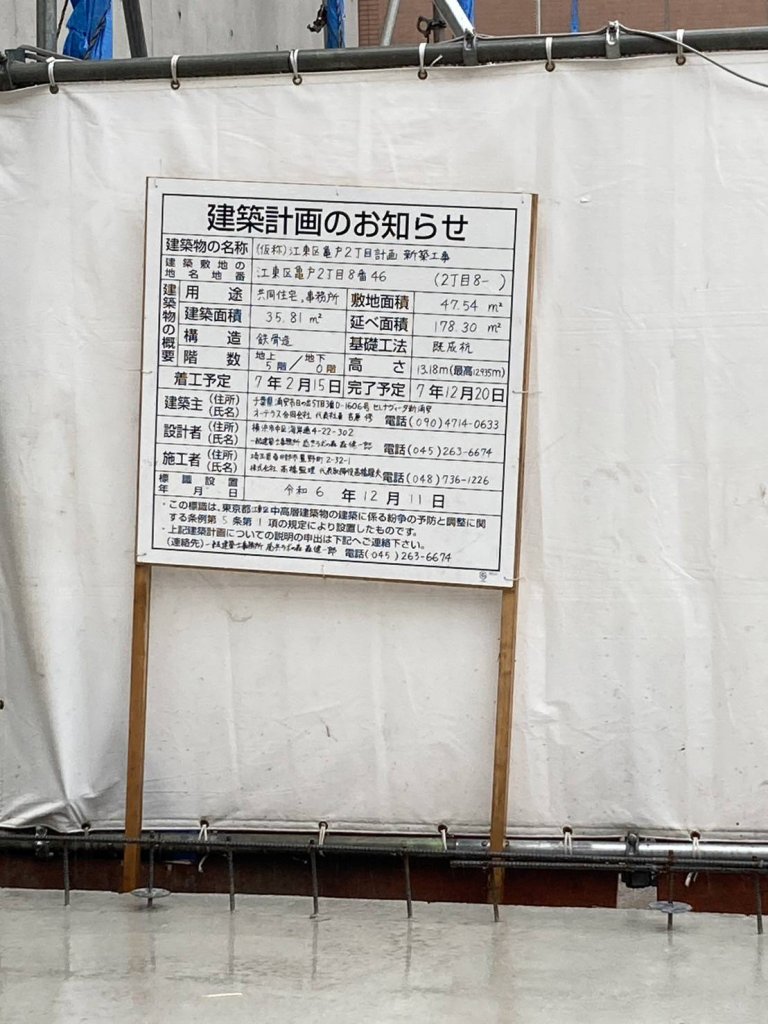 建築計画のお知らせ
建築物の名称 (仮称)江東区亀戸2丁目計画 新築工事
建築敷地の地名地番 江東区亀戸2丁目8番46 (2丁目8- )
建築物の概要
用途 共同住宅,事務所 敷地面積 47.54 m²
建築面積 35.81 m² 延べ面積 178.30 m²
構造 鉄骨造 基礎工法 既成杭
階数 地上5階/地下0階 高さ 13.18m(最高12.935m)
着工予定 7年2月15日 完了予定 7年12月20日
建築主(住所) 千葉県浦安市日の出5丁目3番D-1606号
(氏名) オーテラス合同会社 代表社員 電話(090)4714-0633
設計者(住所) 横浜市中区海岸通4-22-302
(氏名) 一級建築士事務所 電話(045)263-6674
施工者(住所) 埼玉県春日部市豊野町2-32-1
(氏名) 株式会社 高橋監理 代表取締役高橋 電話(048)736-1226
標識設置年月日 令和6年12月11日
・この標識は、東京都江東区中高層建築物の建築に係る紛争の予防と調整に関
する条例第5条第1項の規定により設置したものです。
・上記建築計画についての説明の申出は下記へご連絡下さい。
(連絡先)一級建築士事務所 電話(045)263-6674